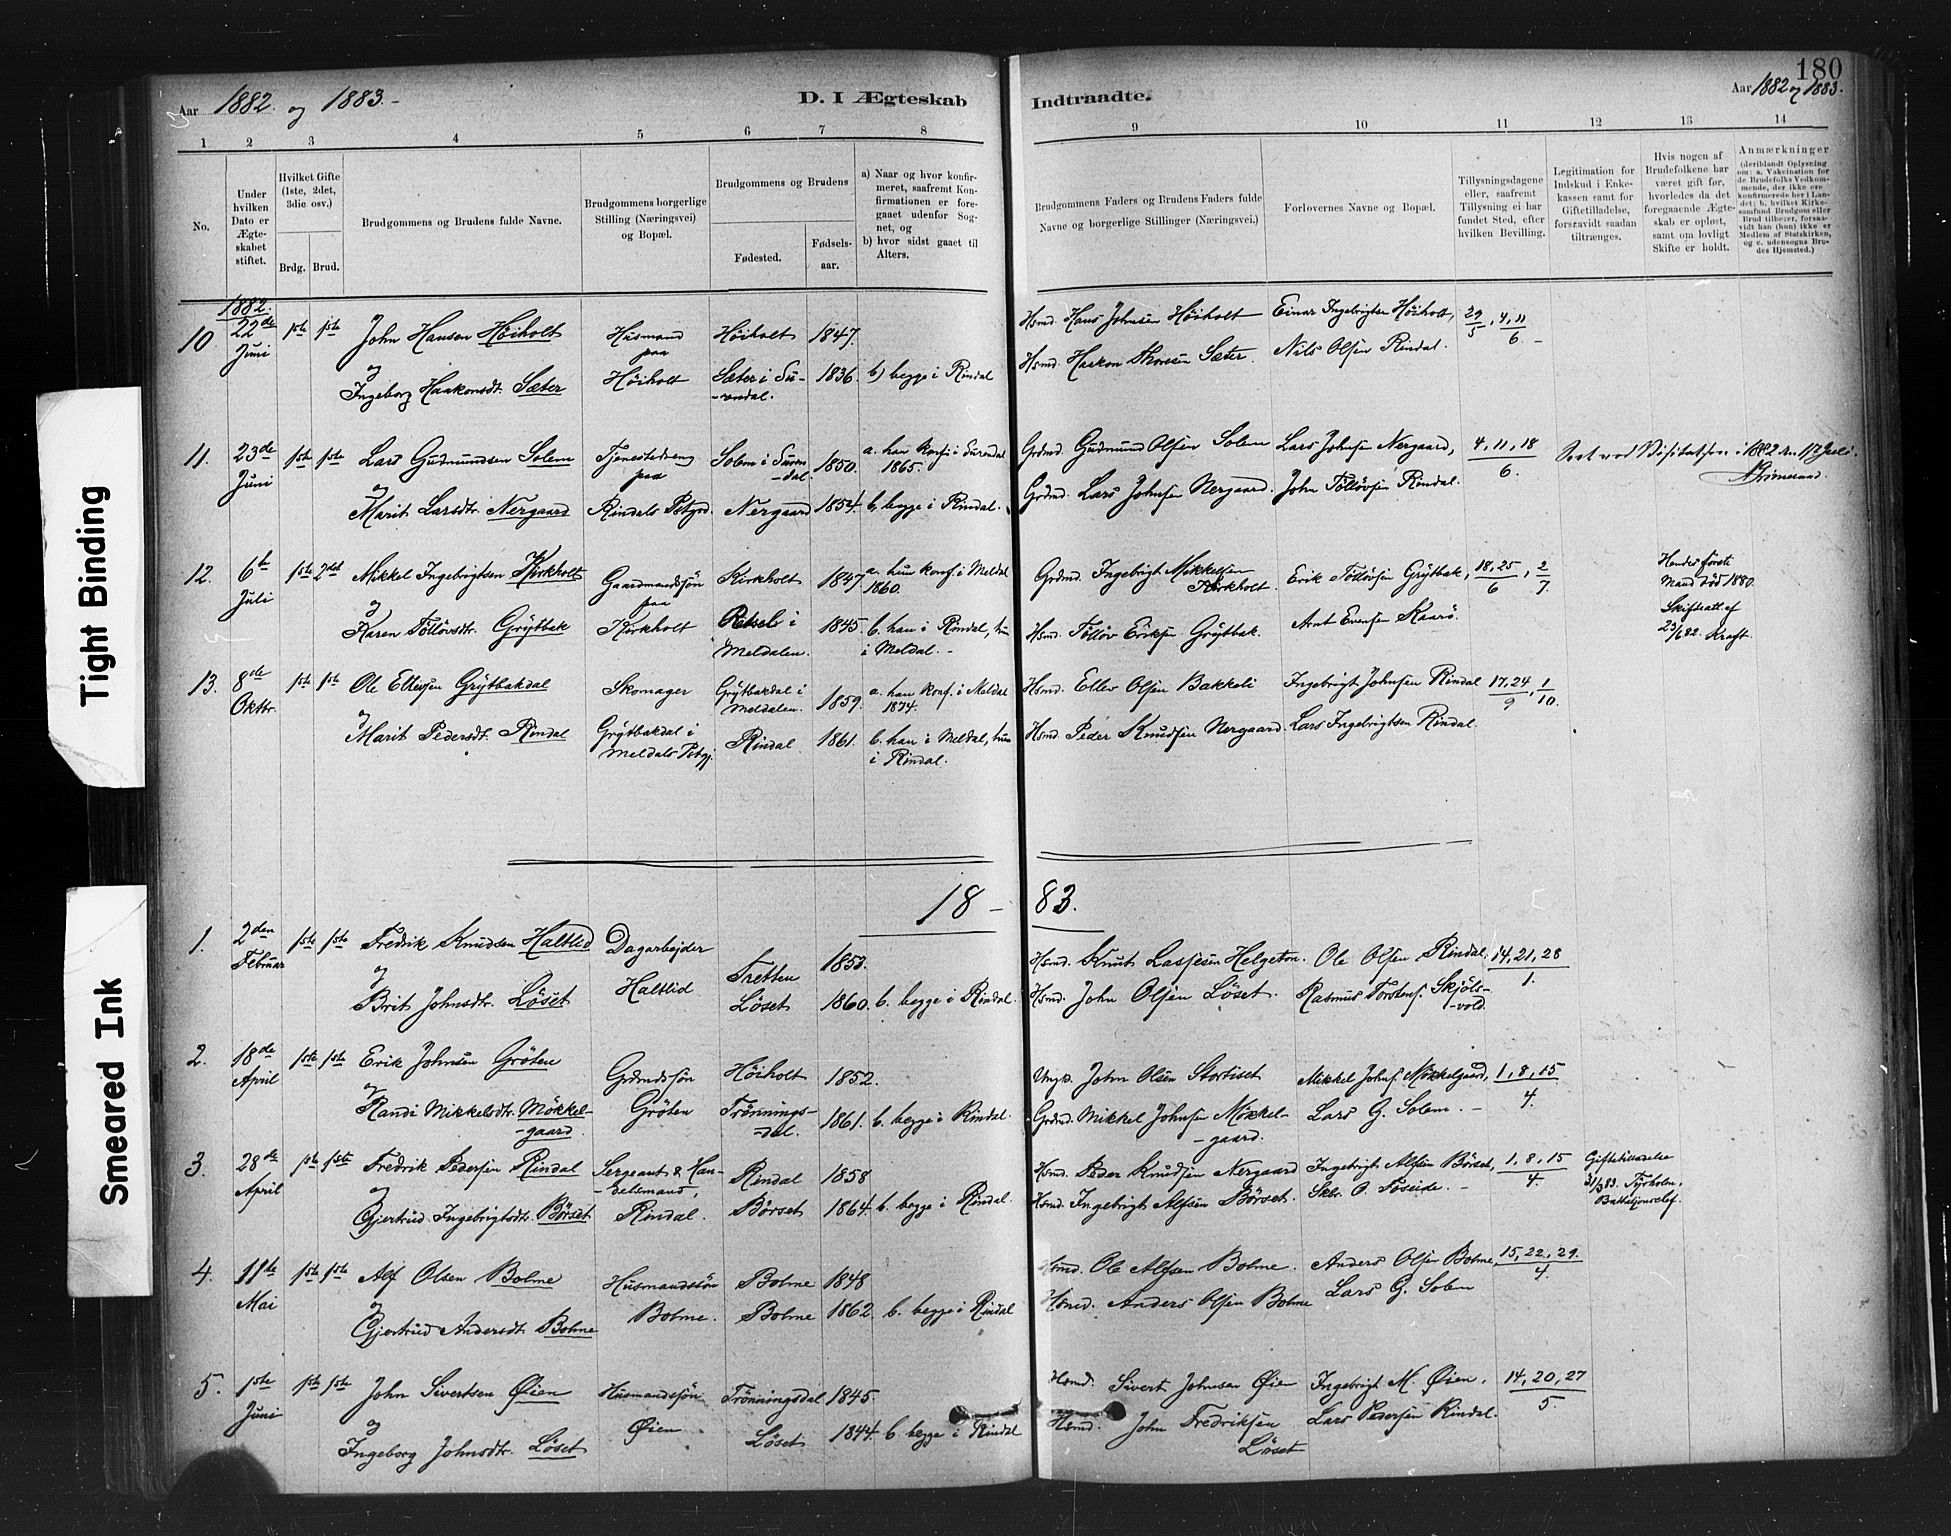 180
Aar 1882 og 1883.-
D. I Ægteskab
Indtraadte.
Aar 1882 og 1883.
1 2 3 4 5 6 7 8 9 10 11 12 13 14
No.
Under hvilken Dato er Ægteskabet stiftet.
Hvilket Gifte (1ste, 2det, 3die osv.)
Brdg. Brud.
Brudgommens og Brudens fulde Navne.
Brudgommens borgerlige Stilling (Næringsvei) og Bopæl.
Brudgommens og Brudens
Fødested.
Fødselsaar.
a) Naar og hvor konfirmeret, saafremt Konfirmationen er foregaaet udenfor Sognet, og
b) hvor sidst gaaet til Alters.
Brudgommens Faders og Brudens Faders fulde Navne og borgerlige Stillinger (Næringsvei.)
Forlovernes Navne og Bopæl.
Tillysningsdagene eller, saafremt Tillysning ei har fundet Sted, efter hvilken Bevilling.
Legitimation for Indskud i Enkekassen samt for Giftetilladelse, forsaavidt saadan tiltrænges.
Hvis nogen af Brudefolkene har været gift før, hvorledes da det foregaaende Ægteskab er opløst, samt om lovligt Skifte er holdt.
Anmærkninger (deriblandt Oplysning om: a. Vakcination for de Brudefolks Vedkommende, der ikke ere konfirmerede her i Landet; b. hvilket Kirkesamfund Brudgom eller Brud tilhører, forsaavidt han (hun) ikke er Medlem af Statskirken, og c. udensogns Brudes Hjemsted.)
1882.
10 22de Juni 1ste 1ste John Hansen Høiholt Husmand paa Høiholt 1847. Hsmd. Hans Johnsen Høiholt Einar Ingebrigtsen Høiholt, 29/5, 4, 11/6. -
og Ingeborg Haakonsdt. Sæter Høiholt Sæter i Surendal. 1836. b) begge i Rindal Hsmd. Haakon Thoresen Sæter. Nils Olsen Rindal.
11. 23de Juni 1ste 1ste Lars Gudmundsen Solem Tjenestedreng paa Solem i Surendal 1850. a. han konf. i Surendal 1865. Grdmd. Gudmund Olsen Solem Lars Johnsen Nergaard, 4, 11, 18/6. Seet ved Visitatsen i 1882 den 17 Juli.
og Marit Larsdtr. Nergaard Rindals Pstgrd. Nergaard 1854. b. begge i Rindal. Grdmd. Lars Johnsen Nergaard. John Tølløvsen Rindal.
12. 6te Juli 1ste 2det Mikkel Ingebrigtsen Kirkholt Gaardmandssøn paa Kirkholt 1847 a. hun konf. i Meldal 1860. Grdmd. Ingebrigt Mikkelsen Kirkholt. Erik Tølløvsen Grytbak, 18, 25/6, 2/7. Hendes første Mand død 1880. Skifteatt. af 23/6 82. Kraft.
og Karen Tølløvsdtr. Grytbak Kirkholt i Meldalen. 1845. b. han i Rindal, hun i Meldal. - Hsmd. Tølløv Eriksen Grytbak. Arnt Evensen Skaarø.
13. 8de Oktbr. 1ste 1ste Ole Ellevsen Grytbakdal Skomager Grytbakdal i Meldalen. 1859. a. han konf. i Meldal 1874. Hsmd. Ellev Olsen Bakkeli Ingebrigt Johnsen Rindal 17, 24/9, 1/10.
og Marit Pedersdt. Rindal Grytbakdal i Meldals Pstgj. Rindal 1861. b. han i Meldal, hun i Rindal. Hsmd. Peder Knudsen Nergaard. Lars Ingebrigtsen Rindal.
18 - 83.
1. 2den Februar 1ste 1ste Fredrik Knudsen Haltlid Dagarbejder Tretten 1853. Hsmd. Knut Lassesen Helgeton. Ole Olsen Rindal, 14, 21, 28/1.
og Brit Johnsdtr. Løset Haltlid Løset 1860. b. begge i Rindal. Hsmd. John Olsen Løset. Rasmus Torstens. Skjølsvold.
2. 18de April 1ste 1ste Erik Johnsen Grøten Grdmdssøn Høiholt 1852. Ungk. John Olsen Stortiset Mikkel Johns. Møkkelgaard, 1, 8, 15/4.
og Randi Mikkelsdtr. Møkkelgaard. Grøten Trønningsdal. 1861. b. begge i Rindal. Grdmd. Mikkel Johnsen Møkkelgaard. Lars G. Solem. -
3. 28de April 1ste 1ste Fredrik Pedersen Rindal Sergeant & Handelsmand, Rindal 1858 Hsmd. Peder Knudsen Nergaard Ingebrigt Alfsen Børset, 1, 8, 15/4. Giftetilladelse 31/3 83. Tyrholm, Bataljonschef.
og Gjertrud Ingebrigtsdtr. Børset Rindal. Børset 1864. b. begge i Rindal. Hsmd. Ingebrigt Alfsen Børset. Skl. O. Foseide. -
4. 11te Mai 1ste 1ste Alf Olsen Bolme Husmandssøn Bolme 1848 Hsmd. Ole Alfsen Bolme. Anders Olsen Bolme, 15, 22, 29/4.
og Gjertrud Andersdt. Bolme Bolme. Bolme 1862. b. begge i Rindal Hsmd. Anders Olsen Bolme Lars G. Solem
5. 1ste Juni 1ste 1ste John Sivertsen Øien Husmandssøn Trønningsdal 1845. Hsmd. Sivert Johnsen Øien Ingebrigt M. Øien, 14, 20, 27/5
og Ingeborg Johnsdtr. Løset Øien Løset 1844. b. begge i Rindal Hsmd. John Fredriksen Løset Lars Pedersen Rindal.
Tight Binding
Smeared Ink